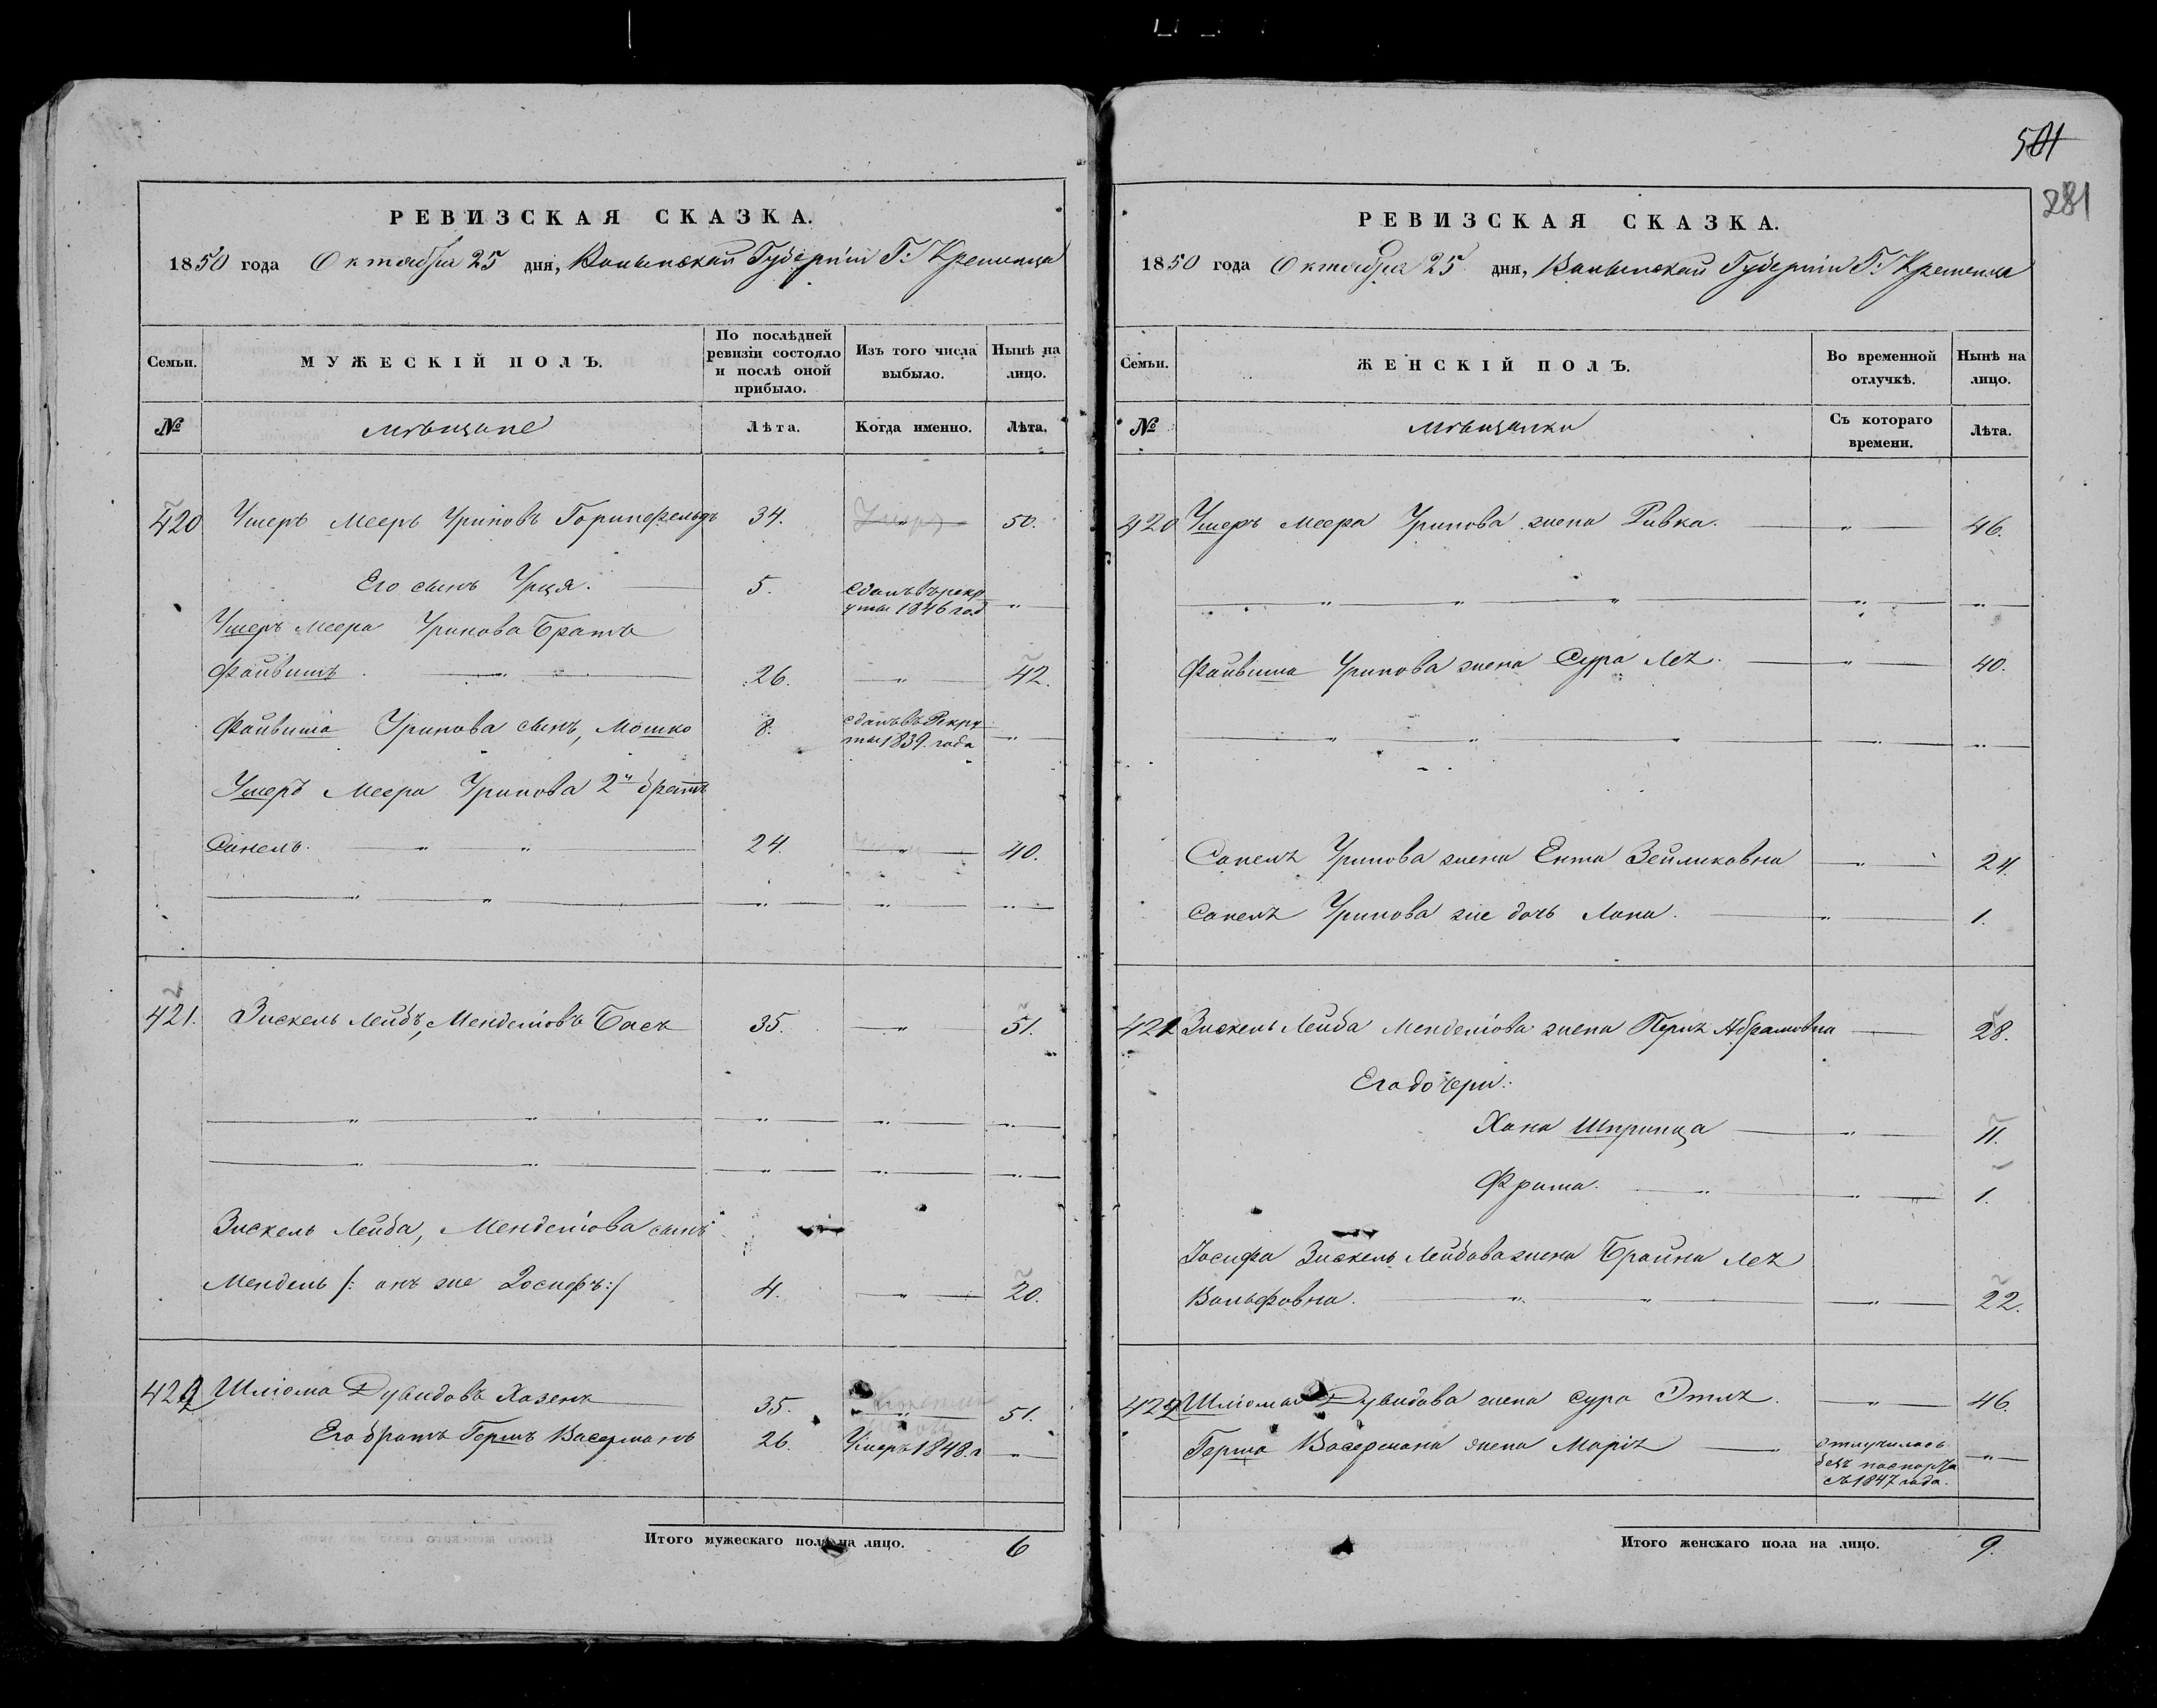 501
281
РЕВИЗСКАЯ СКАЗКА.
1850 года Октября 25 дня, Волынской Губерніи Г: Кременца
Семьи.
МУЖЕСКІЙ ПОЛЪ.
По послѣдней ревизіи состояло и послѣ оной прибыло.
Изъ того числа выбыло.
Нынѣ на лицо.
№
Мѣщане
Лѣта.
Когда именно.
Лѣта.
420 Ушеръ Мееръ Уриновъ Горинфельдъ 34. 50.
Его сынъ Урця. 5. Сданъ въ рекруты 1846 год „
Ушеръ Меера Уринова Братъ
Файвишъ 26. „ 42.
Файвиша Уринова сынъ, Мошко 8. сданъ въ Рекруты 1839. года „
Ушеръ Меера Уринова 2й братъ
Санель. „ „ 24. „ 40.
421. Зискель Лейбъ, Менделіовъ Басъ 35. „ 51.
Зискель Лейба, Менделіова сынъ
Мендель /: онъ же Іосифъ :/ 4. „ 20.
422 Шліома Дувидовъ Хазенъ 35. „ 51.
Его братъ Гершъ Васерманъ 26. Умеръ 1848. г „
Итого мужескаго пола на лицо. 6
РЕВИЗСКАЯ СКАЗКА.
1850 года Октября 25 дня, Волынской Губерніи Г: Кременца
Семьи.
ЖЕНСКІЙ ПОЛЪ.
Во временной отлучкѣ.
Нынѣ на лицо.
№
Мѣщанки
Съ котораго времени.
Лѣта.
420 Ушеръ Меера Уринова жена Ривка. „ 46.
Файвиша Уринова жена Сура Лея. „ 40.
Санеля Уринова жена Ента Зейликовна „ 24.
Санеля Уринова же дочь Лана. „ 1.
421 Зискель Лейба Менделіова жена Перля Абрамовна 28.
Его дочери:
Хана Шпринца „ 11.
Фрима. „ „ 1.
Іосифа Зискель Лейбова жена Брайна Лея
Вольфовна. „ „ „ 22.
422 Шліомы Дувидова жена Сура Этля. „ 46.
Герша Васермана жена Марія отлучилась безъ паспорта съ 1847 года. „
Итого женскаго пола на лицо. 9.